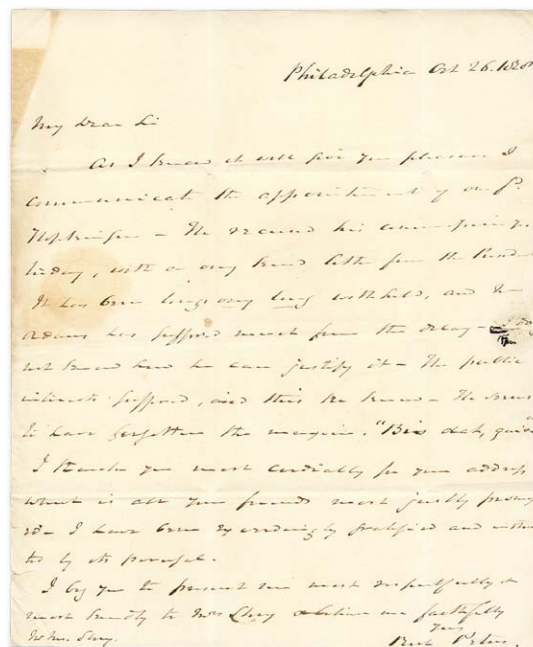 Philadelphia Oct 26. 1828
My Dear Sir
As I know it will give you pleasure I
communicate the appointment of our fd.
Hopkinson – He received his commission yes
terday, with a very kind letter from the Presid
It has been long very long withheld, and Mr
Adams has suffered much from the delay – I do
not know how he can justify it – The public
interests suffered, and this he knew – He seems
to have forgotten the maxim. "Bis dat, qui
I thank you most cordially for your address
what is all your friends most justly pronoun
ed – I have been exceedingly gratified and instruc
ted by its perusal.
I beg you to present me most respectfully &
most kindly to Mrs Story & believe me faithfully
yours
Richd Peters.
Mr Jus. Story.